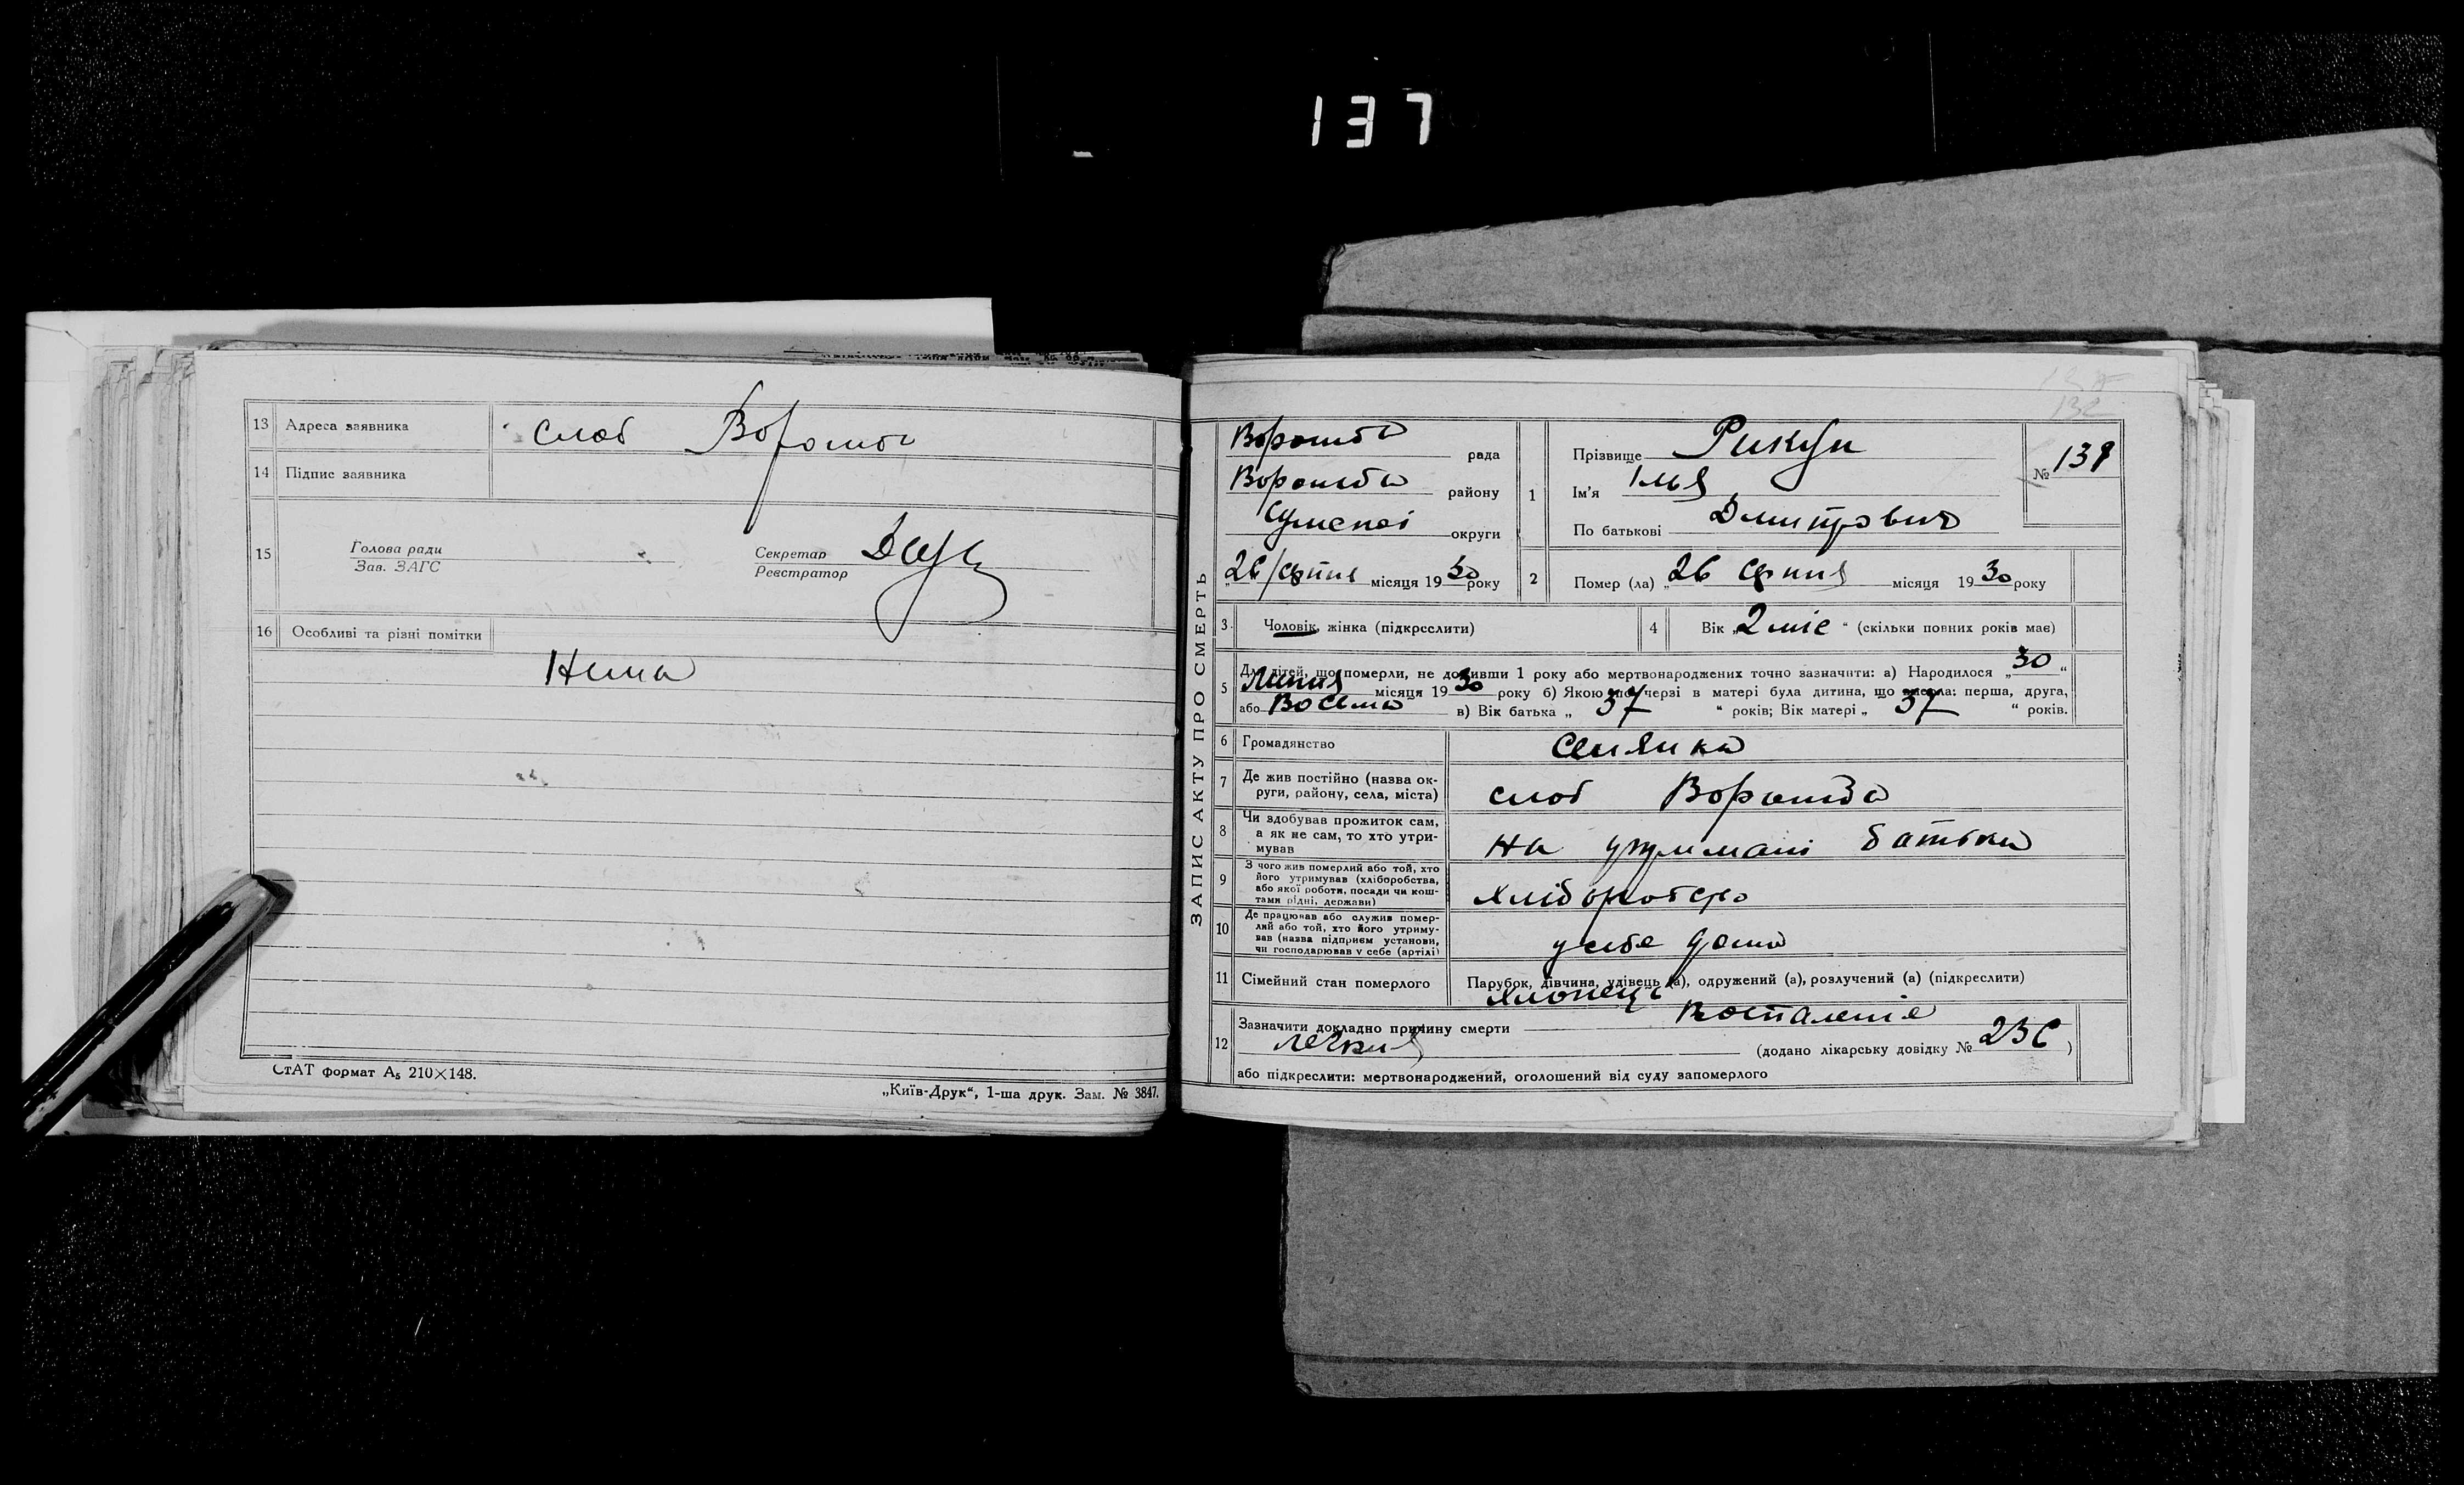 137
13 Адреса заявника слоб Ворожба
14 Підпис заявника
15 Голова ради Секретар
Зав. ЗАГС Реєстратор
16 Особливі та різні помітки
Нима
СтАТ формат А₅ 210×148.
„Київ-Друк“, 1-ша друк. Зам. № 3847.
132
ЗАПИС АКТУ ПРО СМЕРТЬ
Ворожба рада
Ворожба району
Сумской округи
„26/серпня місяця 1930 року
1 Прізвище Рикун
Ім'я Ілья
По батькові Дмитрович
№ 139
2 Помер (ла) „26 серпня місяця 1930 року
3 Чоловік, жінка (підкреслити)
4 Вік „2 міс“ (скільки повних років має)
5 Для дітей, що померли, не доживши 1 року або мертвонароджених точно зазначити: а) Народилося „30“
Липня місяця 1930 року б) Якою по черзі в матері була дитина, що вмерла: перша, друга,
або Восьма в) Вік батька „37“ років; Вік матері „37“ років.
6 Громадянство
7 Де жив постійно (назва ок-
руги, району, села, міста) слоб Ворожба
8 Чи здобував прожиток сам,
а як не сам, то хто утри-
мував на утримані батька
9 З чого жив померлий або той, хто
його утримував (хліборобства,
або якої роботи, посади чи кош-
тами рідні, держави) хліборобство
10 Де працював або служив помер-
лий або той, хто його утриму-
вав (назва підприєм установи,
чи господарював у себе (артілі) у себе дома
11 Сімейний стан померлого Парубок, дівчина, удівець (а), одружений (а), розлучений (а) (підкреслити)
хлопець
12 Зазначити докладно причину смерти Воспаление
легких (додано лікарську довідку № 236)
або підкреслити: мертвонароджений, оголошений від суду запомерлого